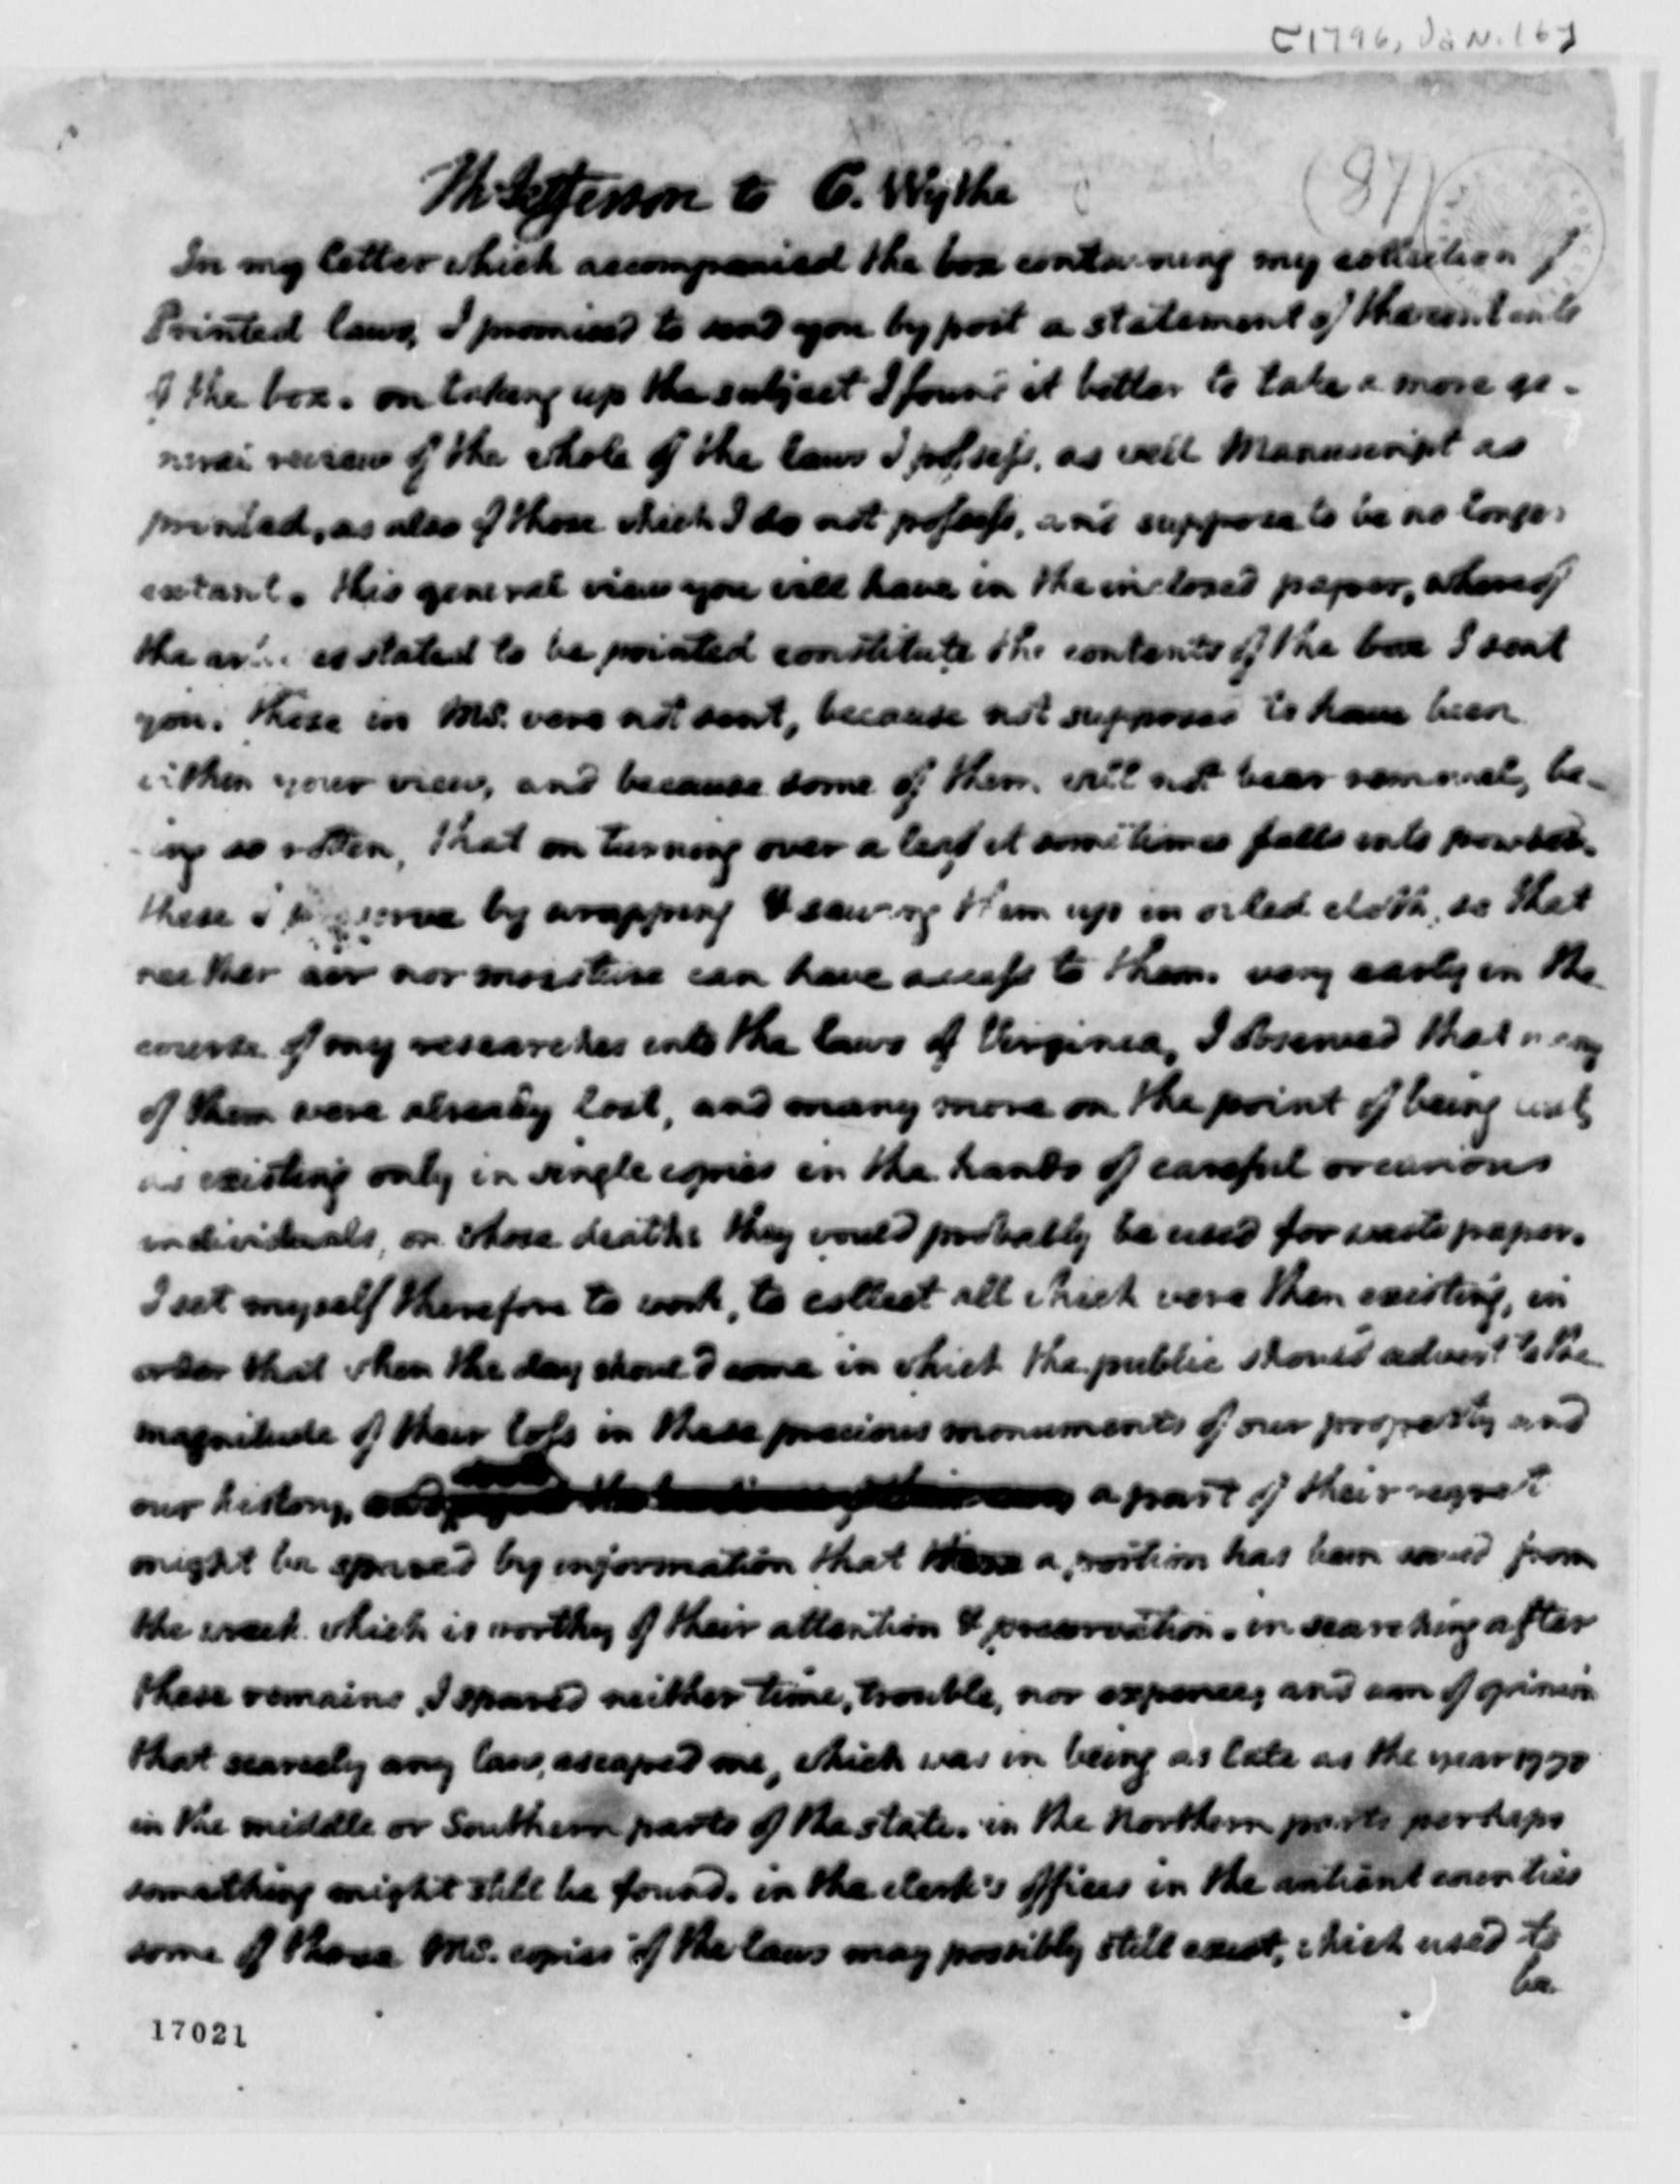 [1796, Jan. 16]
(87)
Th: Jefferson to G. Wythe
In my letter which accompanied the box containing my collection of
Printed laws, I promised to send you by post a statement of the contents
of the box. on taking up the subject I found it better to take a more ge-
neral review of the whole of the laws I possess, as well Manuscript as
printed, as also of those which I do not possess, and suppose to be no longer
extant. this general view you will have in the inclosed paper, whereof
the articles stated to be printed constitute the contents of the box I sent
you. those in MS. were not sent, because not supposed to have been
within your view, and because some of them will not bear removal, be-
ing so rotten, that on turning over a leaf it sometimes falls into powder.
these I preserve by wrapping & sewing them up in oiled cloth, so that
neither air nor moisture can have access to them. very early in the
course of my researches into the laws of Virginia, I observed that many
of them were already lost, and many more on the point of being lost,
as existing only in single copies in the hands of careful or curious
individuals, on whose deaths they would probably be used for waste paper.
I set myself therefore to work, to collect all which were then existing, in
order that when the day should come in which the public should advert to the
magnitude of their loss in these precious monuments of our property and
our history, a part of their regret
might be spared by information that a portion has been saved from
the wreck which is worthy of their attention & preservation. in searching after
these remains, I spared neither time, trouble, nor expence; and am of opinion
that scarcely any law escaped me, which was in being as late as the year 1770
in the middle or Southern parts of the state. in the Northern parts perhaps
something might still be found. in the clerk's offices in the antient counties
some of these MS. copies of the laws may possibly still exist, which used to
be
17021